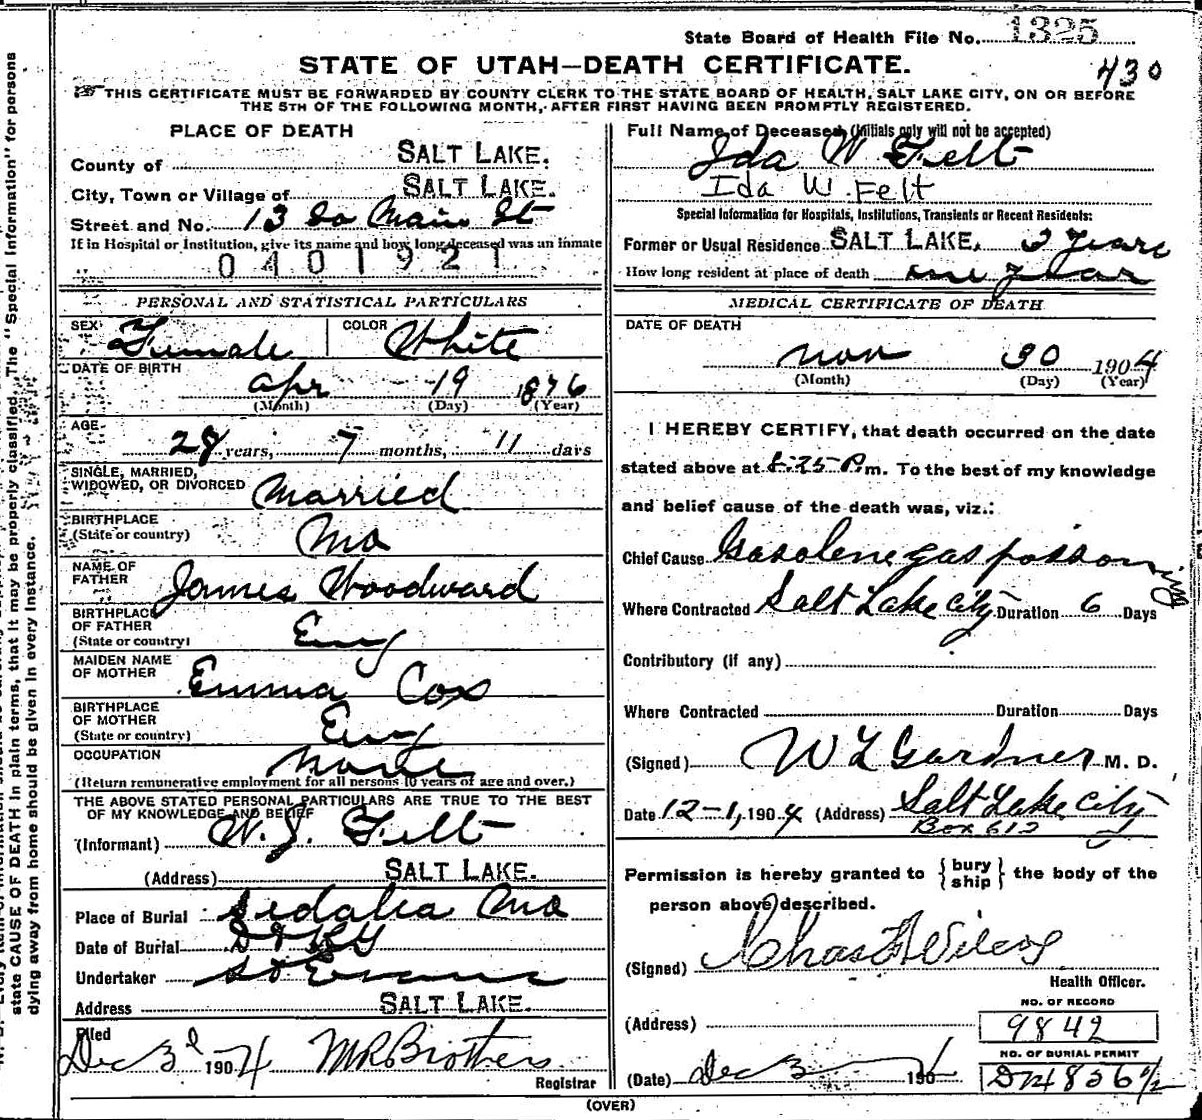 State Board of Health File No. 1325
STATE OF UTAH—DEATH CERTIFICATE.
430
THIS CERTIFICATE MUST BE FORWARDED BY COUNTY CLERK TO THE STATE BOARD OF HEALTH, SALT LAKE CITY, ON OR BEFORE
THE 5TH OF THE FOLLOWING MONTH, AFTER FIRST HAVING BEEN PROMPTLY REGISTERED.
PLACE OF DEATH
County of SALT LAKE.
City, Town or Village of SALT LAKE.
Street and No. 13 So Main St
If in Hospital or Institution, give its name and how long deceased was an inmate
0401921
PERSONAL AND STATISTICAL PARTICULARS
SEX Female COLOR White
DATE OF BIRTH
Apr 19 1876
(Month) (Day) (Year)
AGE
28 years, 7 months, 11 days
SINGLE, MARRIED,
WIDOWED, OR DIVORCED Married
BIRTHPLACE
(State or country) Mo
NAME OF
FATHER James Woodward
BIRTHPLACE
OF FATHER
(State or country) Eng
MAIDEN NAME
OF MOTHER Emma Cox
BIRTHPLACE
OF MOTHER
(State or country) Eng
OCCUPATION None
(Return remunerative employment for all persons 10 years of age and over.)
THE ABOVE STATED PERSONAL PARTICULARS ARE TRUE TO THE BEST
OF MY KNOWLEDGE AND BELIEF
(Informant) W. J. Felt
(Address) SALT LAKE.
Place of Burial Sedalia Mo
Date of Burial
Undertaker S D Evans
Address SALT LAKE.
Filed
Dec 3d 1904 M R Brothers
Registrar
Full Name of Deceased (Initials only will not be accepted)
Ida W Felt
Ida W. Felt
Special Information for Hospitals, Institutions, Transients or Recent Residents:
Former or Usual Residence SALT LAKE. 2 Years
How long resident at place of death one year
MEDICAL CERTIFICATE OF DEATH
DATE OF DEATH
Nov 30 1904
(Month) (Day) (Year)
I HEREBY CERTIFY, that death occurred on the date
stated above at 8:25 P.m. To the best of my knowledge
and belief cause of the death was, viz.:
Chief Cause Gasolene gas poisoning
Where Contracted Salt Lake City Duration 6 Days
Contributory (if any)
Where Contracted Duration Days
(Signed) W L Gardner M. D.
Date 12-1, 1904 (Address) Salt Lake City
Box 612
Permission is hereby granted to {bury ship} the body of the
person above described.
(Signed) Chas F Wilcox
Health Officer.
NO. OF RECORD
(Address) 9842
NO. OF BURIAL PERMIT
(Date) Dec 3 190 D74836 1/2
(OVER)
state CAUSE OF DEATH in plain terms, that it may be properly classified. The "Special Information" for persons
dying away from home should be given in every instance.